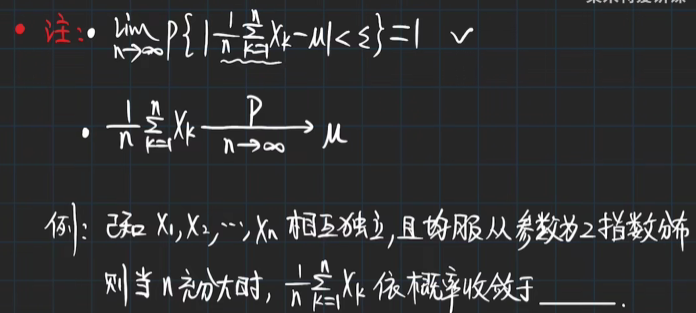 注: lim n→∞ P{|1/n ∑_{k=1}^{n} X_k - μ| < ε} = 1 ✓
1/n ∑_{k=1}^{n} X_k —P/n→∞→ μ
例: 已知 X₁, X₂, …, Xn 相互独立, 且均服从参数为2指数分布
则当 n 充分大时, 1/n ∑_{k=1}^{n} X_k 依概率收敛于______.